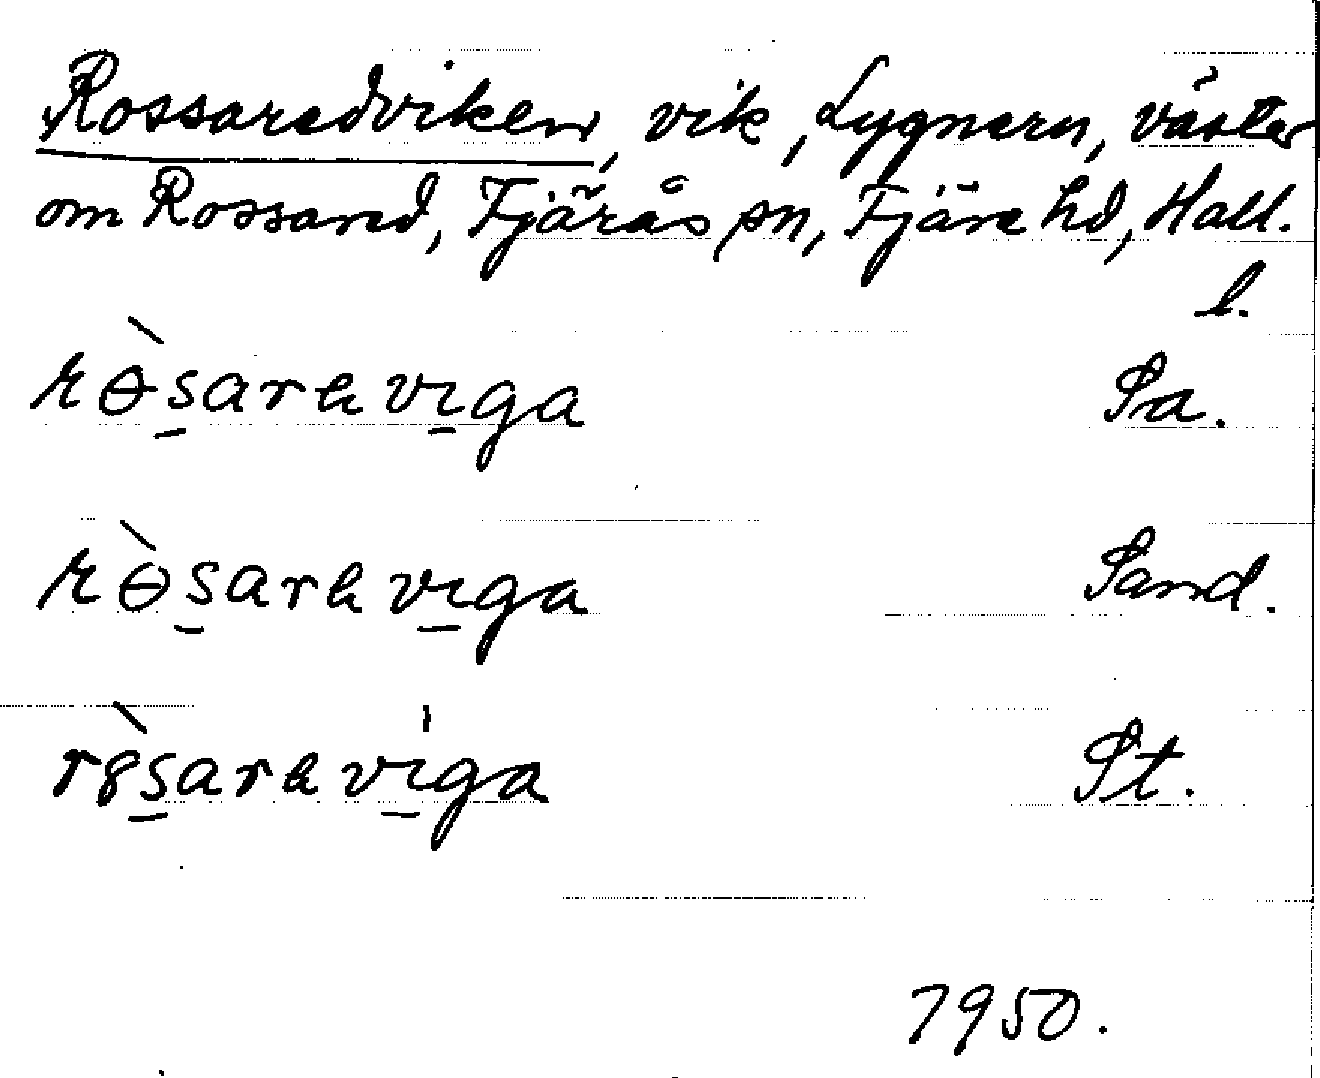 Rossaredviken, vik, Lygnern, väster
om Rossared, Fjärås sn, Fjäre hd, Hall.
l.
rɵ̀saravıga Sa.
rɵ̀saravıga Sand.
r8̀saravıga St.
1950.